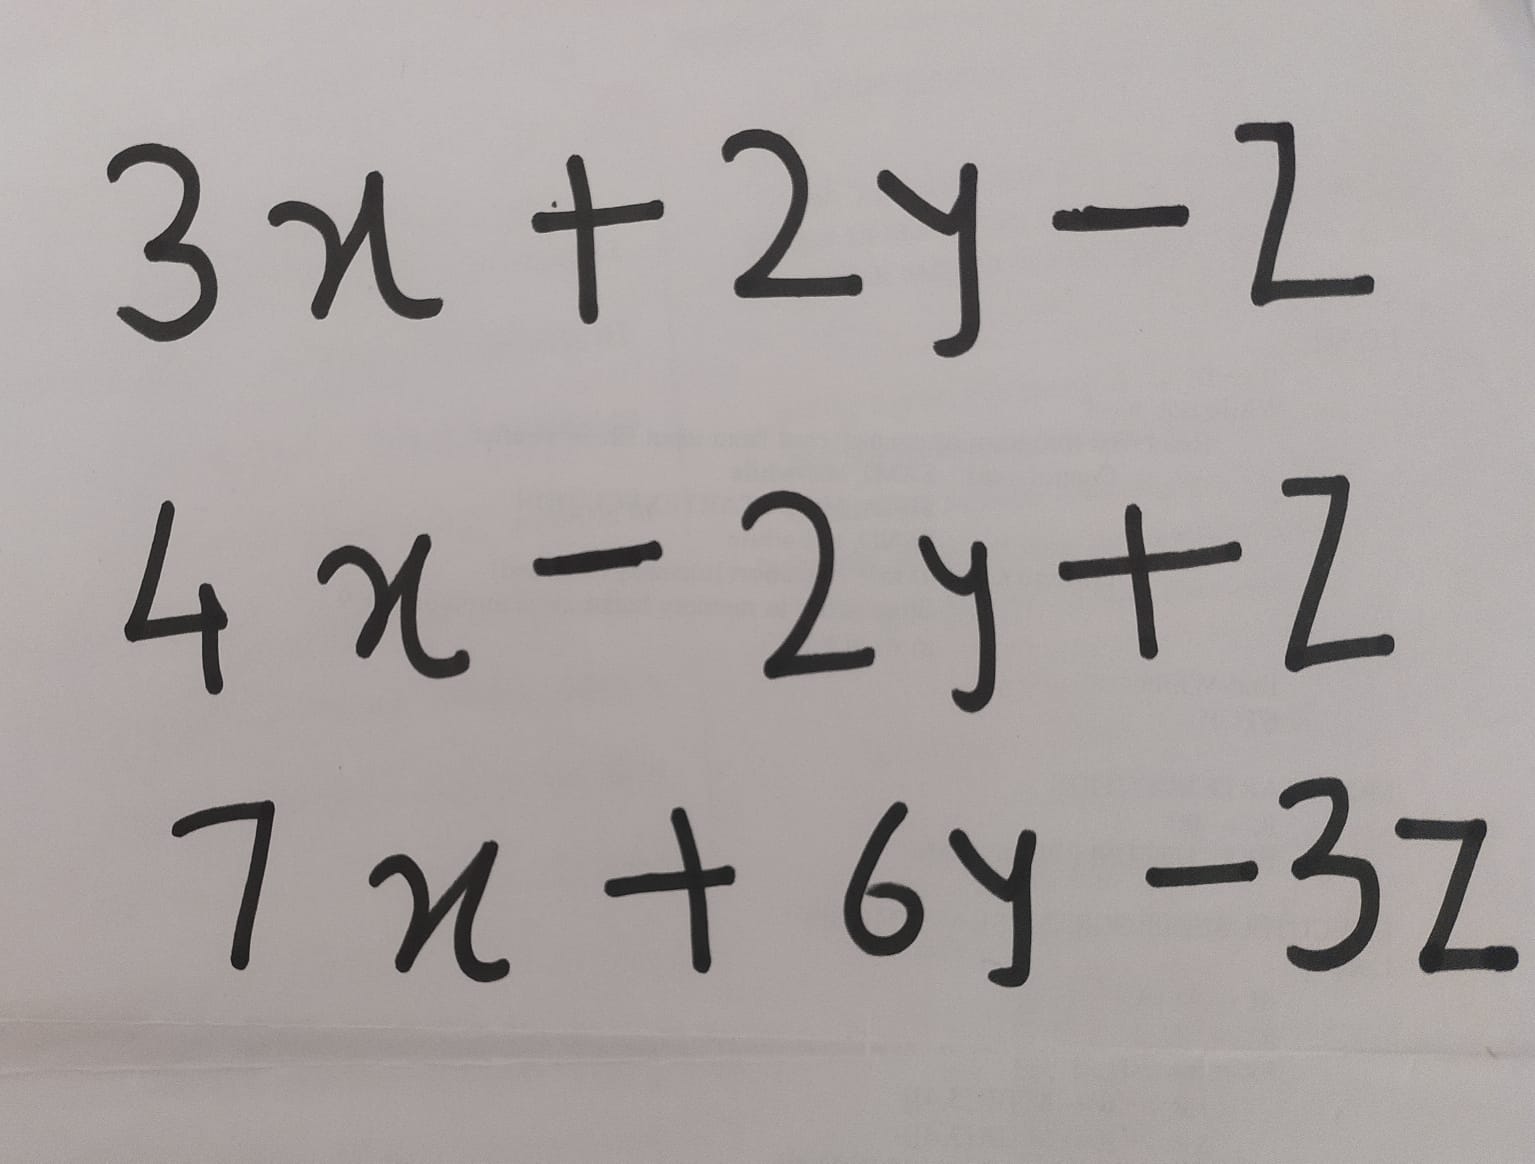 3x + 2y - z
4x - 2y + z
7x + 6y - 3z